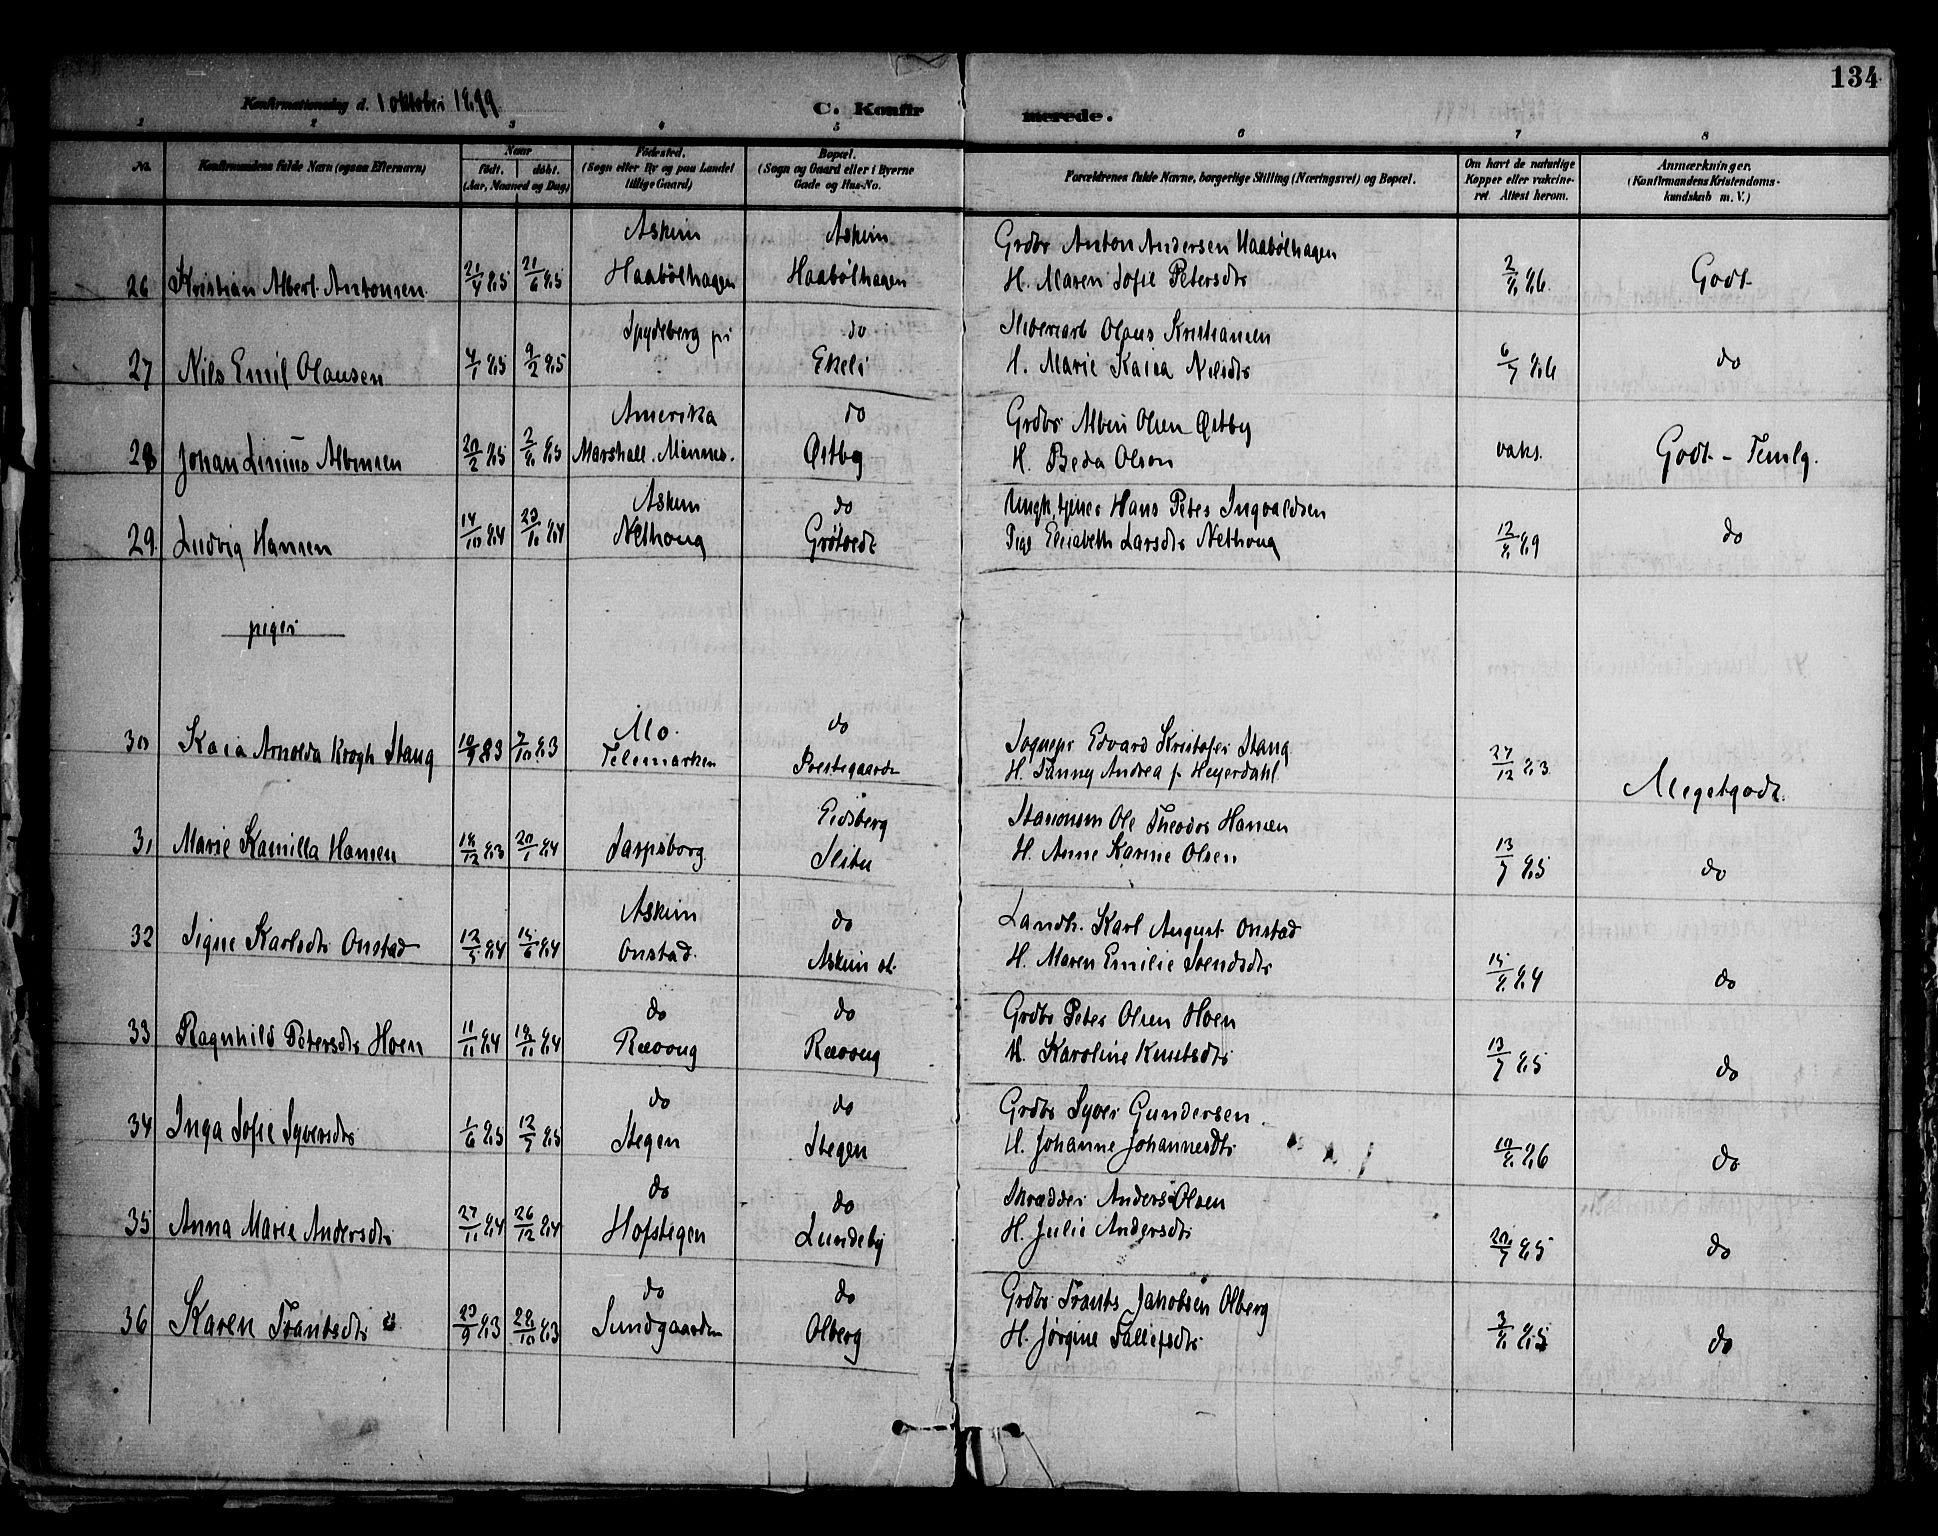 134
Konfirmationsdag d. 1 oktober 1899
C. Konfirmerede.
1 2 3 4 5 6 7 8
No.
Konfirmandens fulde Navn (ogsaa Efternavn)
Naar
født. døbt.
(Aar, Maaned og Dag)
Fødested.
(Sogn eller By og paa Landet
tillige Gaard)
Bopæl.
(Sogn og Gaard eller i Byerne
Gade og Hus-No.
Forældrenes fulde Navne, borgerlige Stilling (Næringsvei) og Bopæl.
Om havt de naturlige
Kopper eller vakcine-
ret Attest herom.
Anmærkninger.
(Konfirmandens Kristendoms-
kundskab m. V.)
Askim Askim Grdbr Anton Andersen Haabølhagen
26 Kristian Albert Antonsen 21/4 85 21/6 85 Haabølhagen Haabølhagen H. Maren Sofie Petersdtr 2/8 86 Godt
Spydeberg pr do Olaus Kristiansen
27 Nils Emil Olausen 4/1 85 9/2 85 Ekeli H. Marie Kaisa Nilsdtr 6/7 86 do
Amerika do Grdbr Albin Olsen Østby
28 Johan Linius Albinsen 20/2 85 2/8 85 Marshall. Minnes. Østby H. Beda Olson vaks. Godt - Temlg.
Askim do Ungk, tjener Hans Peter Ingvaldsen
29. Ludvig Hansen 14/10 84 23/11 84 Nethoug Grøtvedt Pige Elisabeth Larsdtr Nethoug 12/8 89 do
piger
Mo. do Sognepr Edvard Kristofer Stang
30 Kaia Arnolda Krogh Stang 10/9 83 7/10 83 Telemarken Prestegaarden H. Fanny Andrea f. Heyerdahl 27/12 83 Megetgodt.
Eidsberg Stationsm Ole Theodor Hansen
31 Marie Kamilla Hansen 18/12 83 20/1 84 Sarpsborg. Slitu H. Anne Karine Olsen 13/7 85 do
Askim do Landh. Karl August Onstad
32 Signe Karlsdtr Onstad 12/5 84 15/6 84 Onstad. Askim st. H. Maren Emilie Svendsdtr 15/8 84 do
do do Grdbr Peter Olsen Hoen
33 Ragnhild Petersdtr Hoen 11/11 84 18/11 84 Rævoug Rævoug H. Karoline Knutsdtr 13/7 85 do
do do Grdbr Syver Gundersen
34 Inga Sofie Syversdtr 1/6 85 12/7 85 Stegen Stegen H. Johanne Johannesdtr 10/8 86 do
do do Skrædder Anders Olsen
35 Anna Marie Andersdtr 27/11 84 26/12 84 Hofstegen Lundeby H. Julie Andersdtr 20/7 85 do
do do Grdbr Frants Jakobsen Olberg
36 Karen Frantsdtr 23/9 83 28/10 83 Sundgaarden Olberg H. Jørgine Tallefsdtr 3/8 85 do